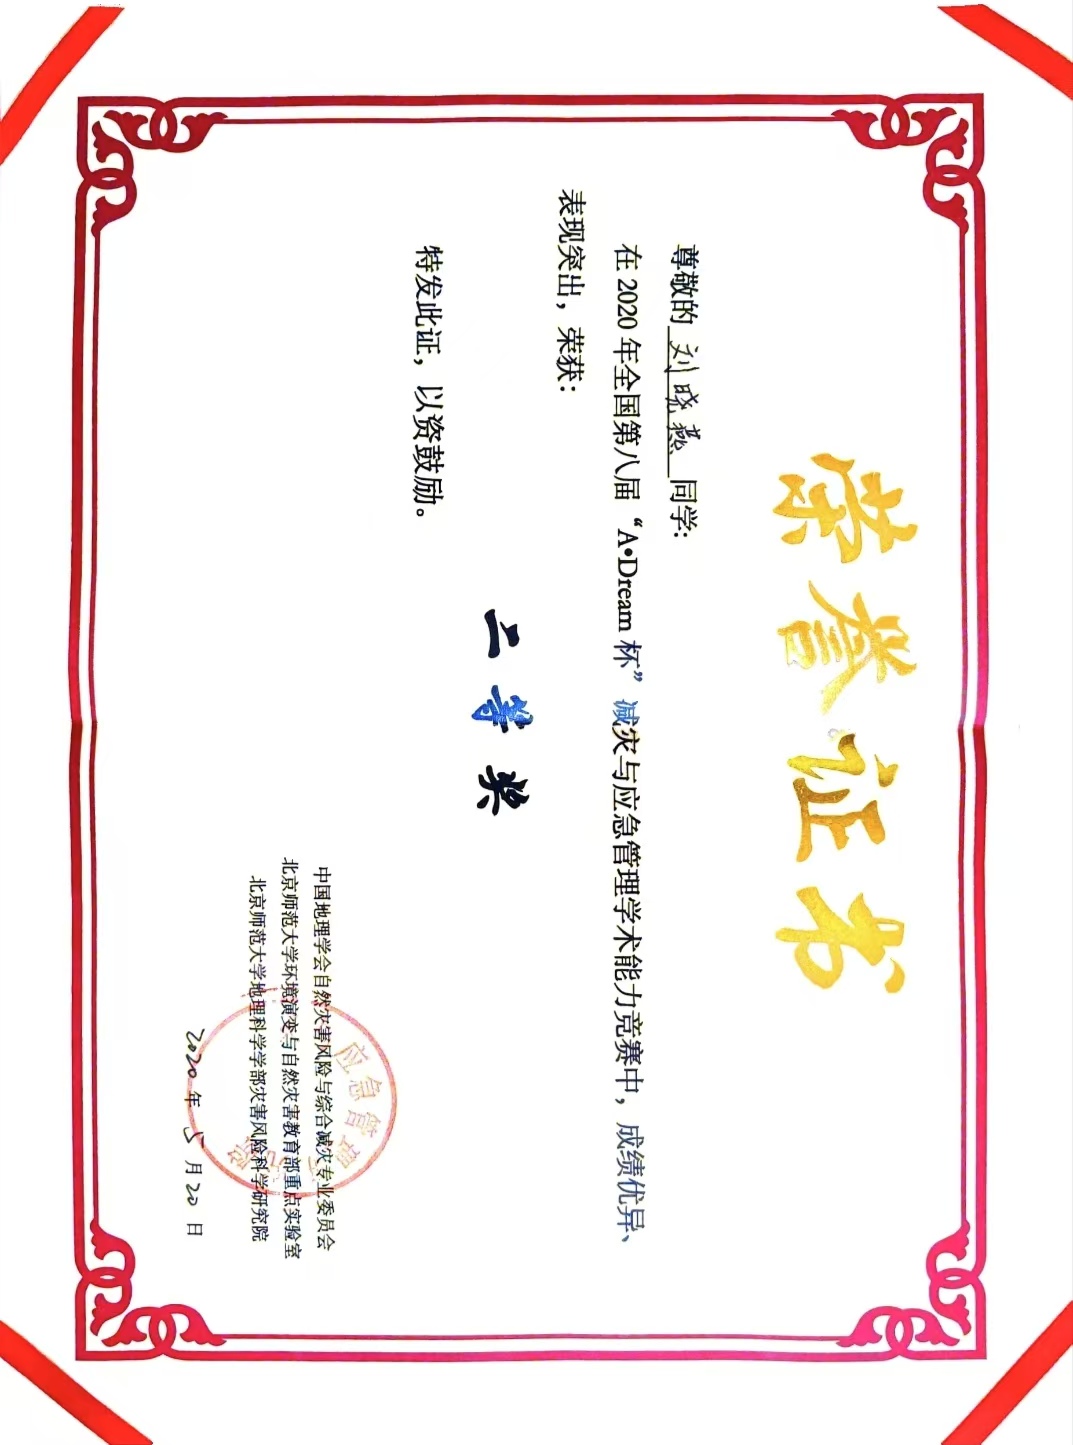 荣誉证书
尊敬的 刘晓燕 同学:
在 2020 年全国第八届“A•Dream 杯”减灾与应急管理学术能力竞赛中，成绩优异、
表现突出，荣获：
二等奖
特发此证，以资鼓励。
应急管理
中国地理学会自然灾害风险与综合减灾专业委员会
北京师范大学环境演变与自然灾害教育部重点实验室
北京师范大学地理科学学部灾害风险科学研究院
2020 年 5 月 20 日